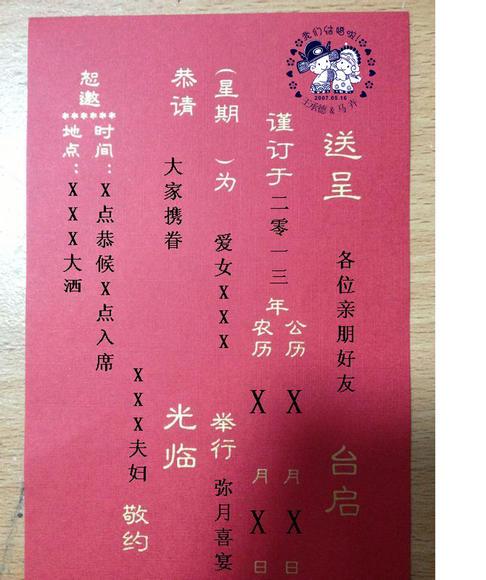 我们结婚啦!
2007.05.16
王承德 & 马
送呈 各位亲朋好友 台启
谨订于二零一三年
公历 X 月 X 日
农历 X 月 X 日
(星期 )为 爱女XXX 举行 弥月喜宴
恭请 大家携眷 光临
XXX夫妇 敬约
恕邀
时间:X点恭候X点入席
地点:XXX大洒